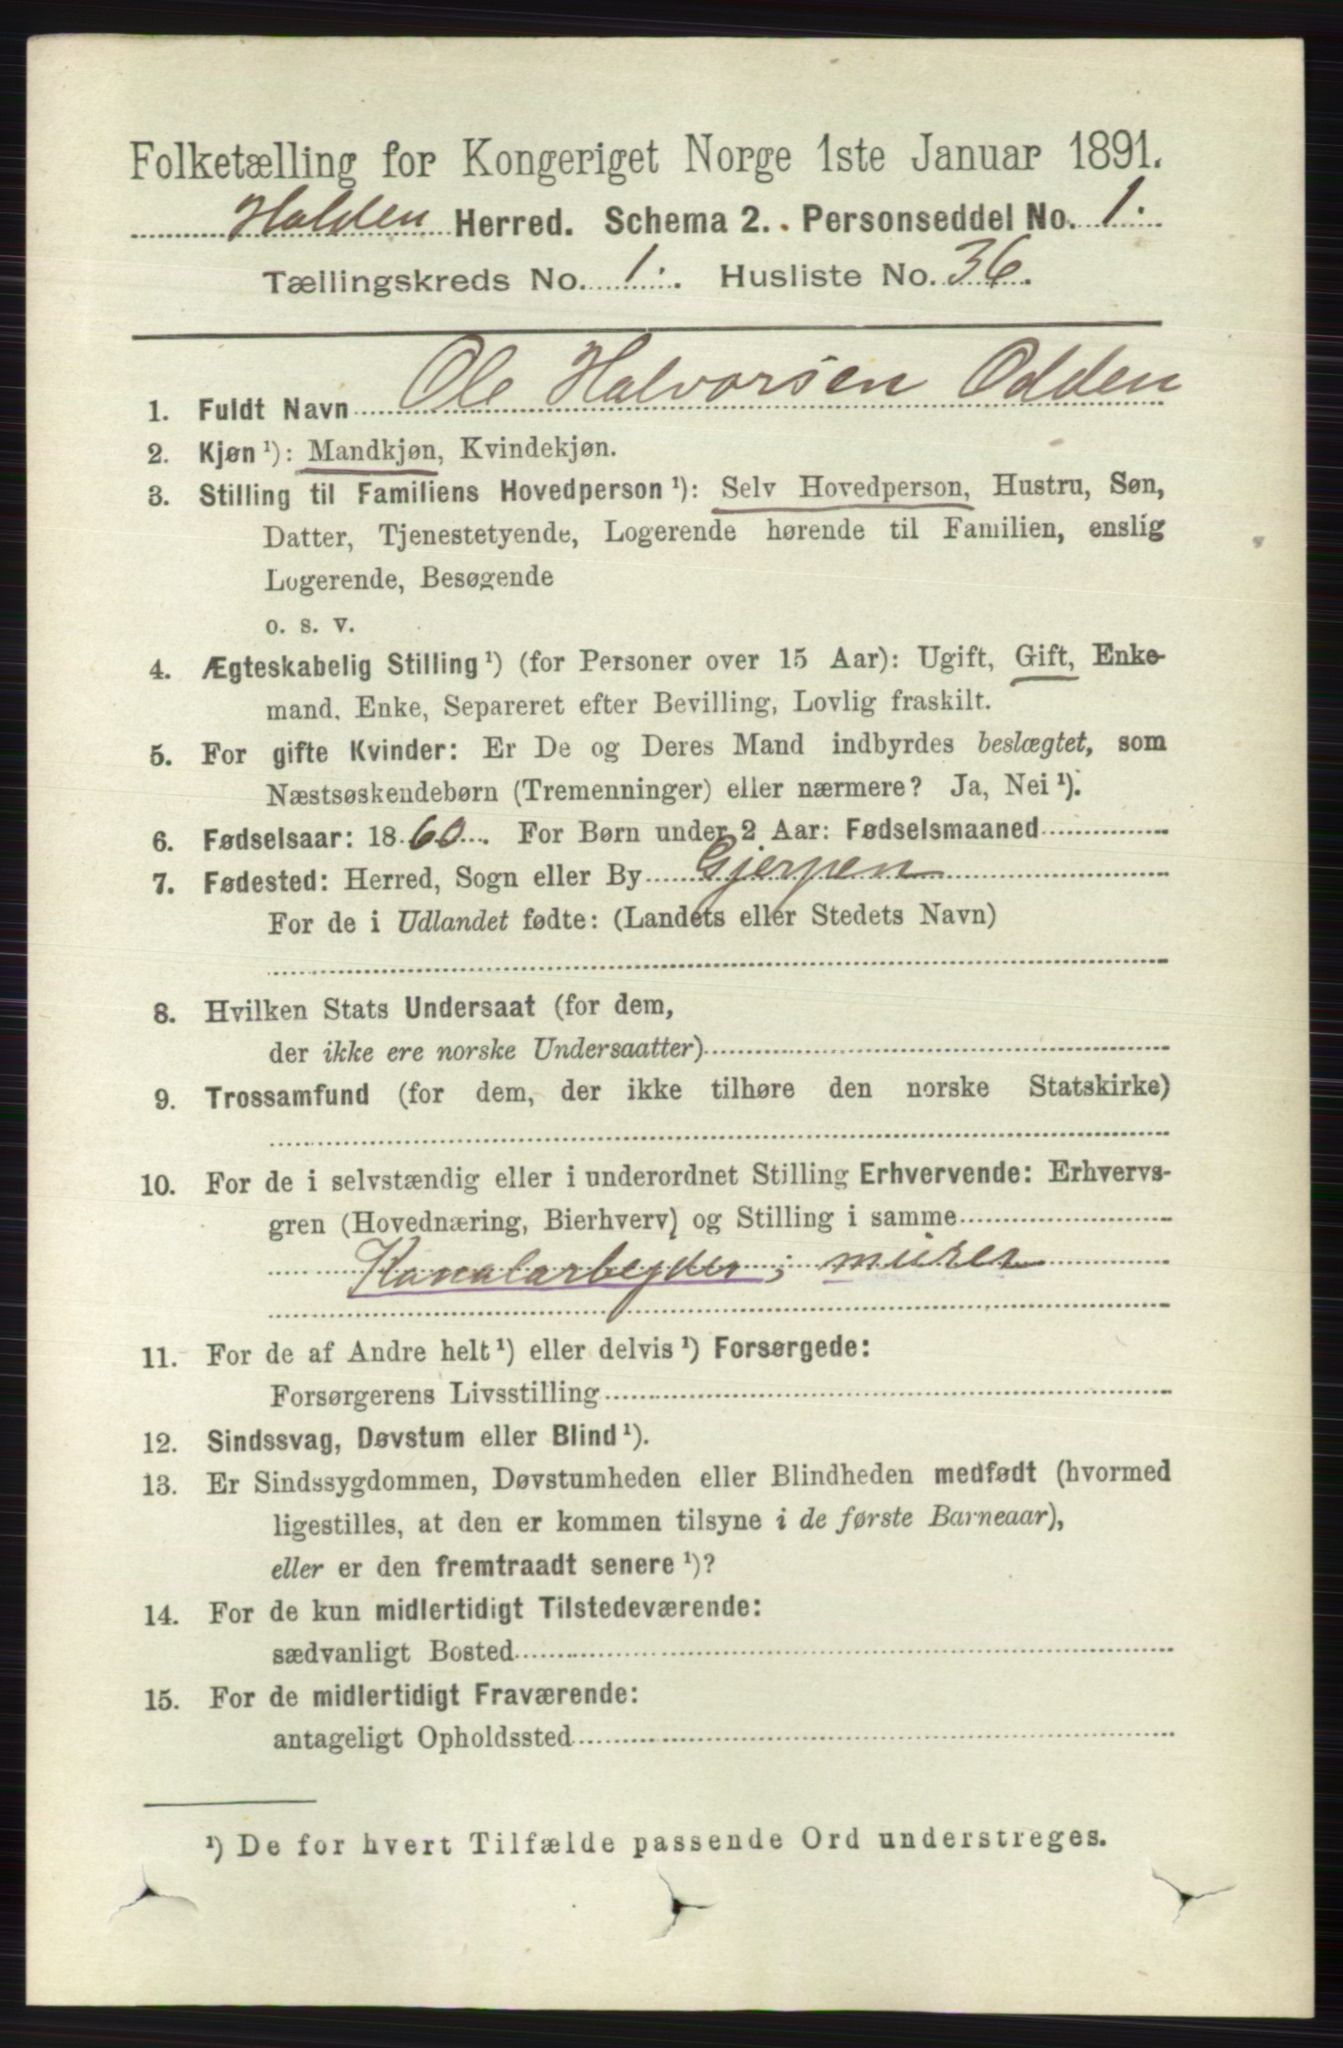 Folketælling for Kongeriget Norge 1ste Januar 1891.
Holden Herred. Schema 2. Personseddel No. 1.
Tællingskreds No. 1. Husliste No. 36.
1. Fuldt Navn Ole Halvorsen Odden
2. Kjøn ¹): Mandkjøn, Kvindekjøn.
3. Stilling til Familiens Hovedperson ¹): Selv Hovedperson, Hustru, Søn,
Datter, Tjenestetyende, Logerende hørende til Familien, enslig
Logerende, Besøgende
o. s. v.
4. Ægteskabelig Stilling ¹) (for Personer over 15 Aar): Ugift, Gift, Enke-
mand, Enke, Separeret efter Bevilling, Lovlig fraskilt.
5. For gifte Kvinder: Er De og Deres Mand indbyrdes beslægtet, som
Næstsøskendebørn (Tremenninger) eller nærmere? Ja, Nei ¹).
6. Fødselsaar: 1860. For Børn under 2 Aar: Fødselsmaaned
7. Fødested: Herred, Sogn eller By Gjerpen
For de i Udlandet fødte: (Landets eller Stedets Navn)
8. Hvilken Stats Undersaat (for dem,
der ikke ere norske Undersaatter)
9. Trossamfund (for dem, der ikke tilhøre den norske Statskirke)
10. For de i selvstændig eller i underordnet Stilling Erhvervende: Erhvervs-
gren (Hovednæring, Bierhverv) og Stilling i samme
Kanalarbejder; murer
11. For de af Andre helt ¹) eller delvis ¹) Forsørgede:
Forsørgerens Livsstilling
12. Sindssvag, Døvstum eller Blind ¹).
13. Er Sindssygdommen, Døvstumheden eller Blindheden medfødt (hvormed
ligestilles, at den er kommen tilsyne i de første Barneaar),
eller er den fremtraadt senere ¹)?
14. For de kun midlertidigt Tilstedeværende:
sædvanligt Bosted
15. For de midlertidigt Fraværende:
antageligt Opholdssted
¹) De for hvert Tilfælde passende Ord understreges.